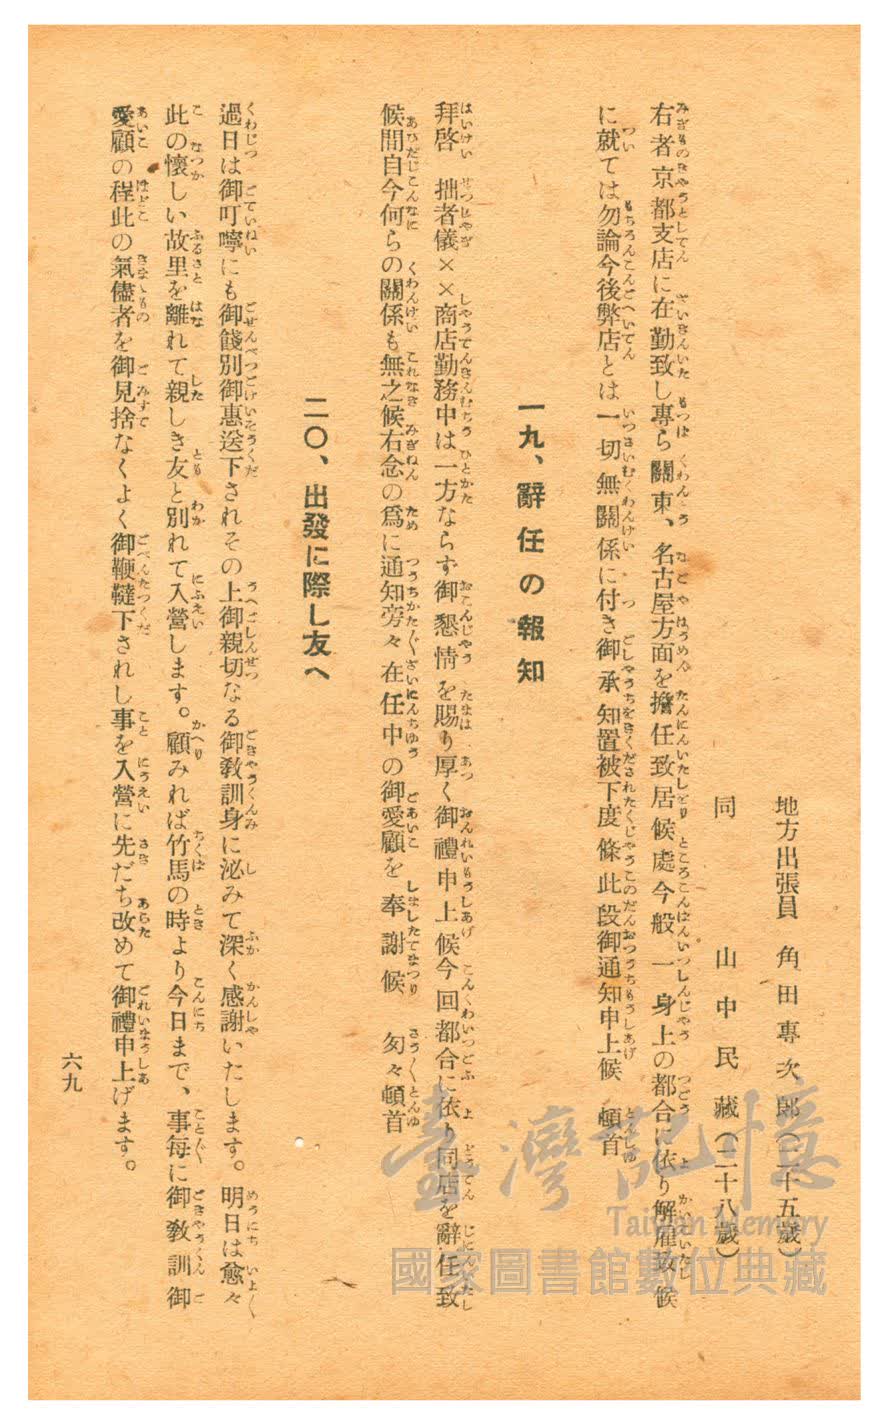 地方出張員　角田專次郎（二十五歲）
同　山中民藏（二十八歲）
右者京都支店に在勤致し專ら關東、名古屋方面を擔任致居候處今般一身上の都合に依り解雇致候
に就ては勿論今後弊店とは一切無關係に付き御承知置被下度條此段御通知申上候　頓首
一九、辭任の報知
拜啓　拙者儀××商店勤務中は一方ならず御懇情を賜り厚く御禮申上候今回都合に依り同店を辭任致
候間自今何らの關係も無之候右念の爲に通知旁々在任中の御愛顧を奉謝候　匆々頓首
二〇、出發に際し友へ
過日は御叮嚀にも御餞別御惠送下されその上御親切なる御敎訓身に泌みて深く感謝いたします。明日は愈々
此の懷しい故里を離れて親しき友と別れて入營します。顧みれば竹馬の時より今日まで、事每に御敎訓御
愛顧の程此の氣儘者を御見捨なくよく御鞭韃下されし事を入營に先だち改めて御禮申上げます。
六九
臺灣記憶
Taiwan Memory
國家圖書館數位典藏